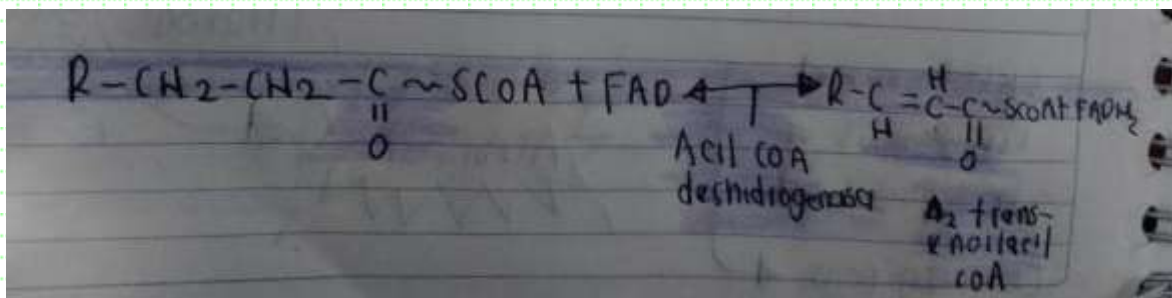 R-CH2-CH2-C~SCOA + FAD ↔ R-C=C-C~SCOA+FADH2
H
H
O
O
Acil COA
deshidrogenasa
Δ2 trans-
enoilacil
COA